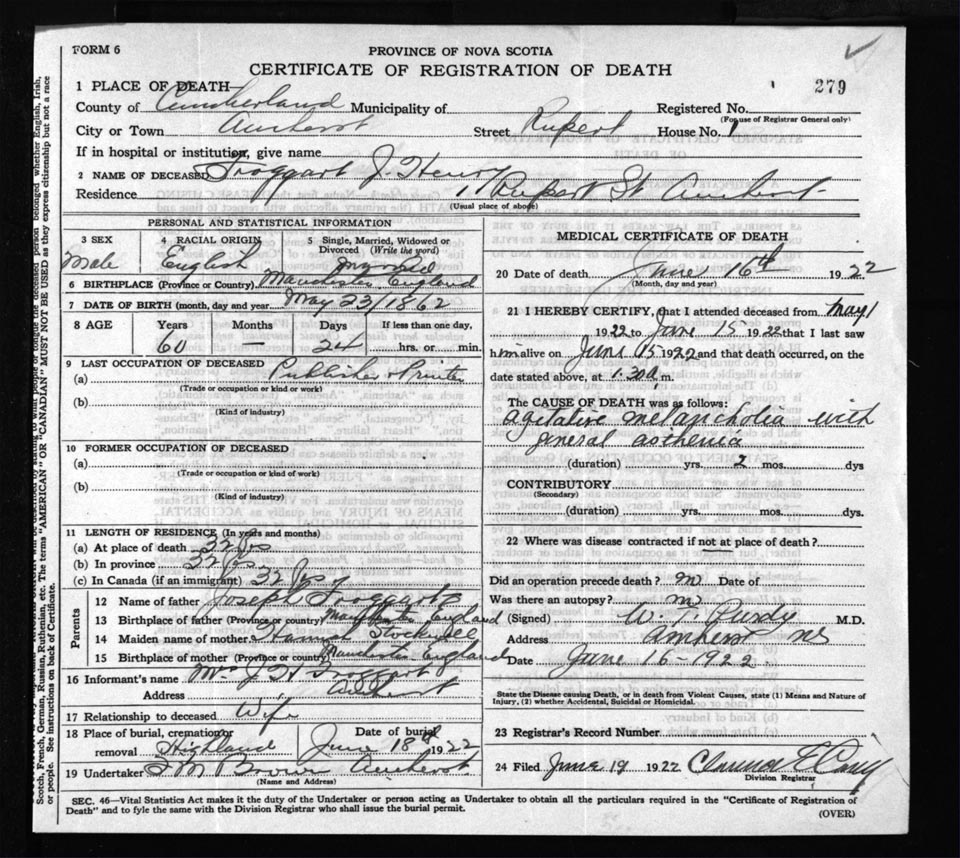 FORM 6
PROVINCE OF NOVA SCOTIA
CERTIFICATE OF REGISTRATION OF DEATH
279
1 PLACE OF DEATH—
County of Cumberland Municipality of Registered No.
(For use of Registrar General only)
City or Town Amherst Street Rupert House No. 1
If in hospital or institution, give name
2 NAME OF DECEASED Froggart J. Henry
Residence 1, Rupert St Amherst
(Usual place of abode)
PERSONAL AND STATISTICAL INFORMATION
3 SEX 4 RACIAL ORIGIN 5 Single, Married, Widowed or Divorced (Write the word)
Male English Married
6 BIRTHPLACE (Province or Country) Manchester England
7 DATE OF BIRTH (month, day and year) May 23/1862
8 AGE Years Months Days If less than one day,
60 — 24 hrs. or min.
9 LAST OCCUPATION OF DECEASED
(a) Publisher & Printer
(Trade or occupation or kind or work)
(b)
(Kind of industry)
10 FORMER OCCUPATION OF DECEASED
(a)
(Trade or occupation or kind of work)
(b)
(Kind of industry)
11 LENGTH OF RESIDENCE (In years and months)
(a) At place of death 32 yrs
(b) In province 32 yrs
(c) In Canada (if an immigrant) 32 yrs
Parents
12 Name of father Joseph Froggart
13 Birthplace of father (Province or country) Manchester England
14 Maiden name of mother Hannah
15 Birthplace of mother (Province or country) Manchester England
16 Informant's name Mrs J H Froggart
Address Amherst
17 Relationship to deceased Wife
18 Place of burial, cremation or removal Highland Date of burial June 18th 1922
19 Undertaker Brown Amherst
(Name and Address)
MEDICAL CERTIFICATE OF DEATH
20 Date of death June 16th 1922
(Month, day and year)
21 I HEREBY CERTIFY, that I attended deceased from May 1
1922 to June 15 1922 that I last saw
him alive on June 15 1922 and that death occurred, on the
date stated above, at 1.30 a. m.
The CAUSE OF DEATH was as follows:
agitative melancholia with
general asthenia
(duration) yrs. 2 mos. dys
CONTRIBUTORY
(Secondary)
(duration) yrs. mos. dys.
22 Where was disease contracted if not at place of death?
Did an operation precede death? no Date of
Was there an autopsy? no
(Signed) W. T. Purdy M.D.
Address Amherst NS
Date June 16-1922
State the Disease causing Death, or in death from Violent Causes, state (1) Means and Nature of
Injury, (2) whether Accidental, Suicidal or Homicidal.
23 Registrar's Record Number
24 Filed June 19 1922 Clarence E Casey
Division Registrar
SEC. 46—Vital Statistics Act makes it the duty of the Undertaker or person acting as Undertaker to obtain all the particulars required in the "Certificate of Registration of
Death" and to fyle the same with the Division Registrar who shall issue the burial permit.
(OVER)
Scotch, French, German, Russian, Ruthenian, etc. The terms "AMERICAN" OR "CANADIAN" MUST NOT BE USED as they express citizenship but not a race
or people. See instructions on back of Certificate.